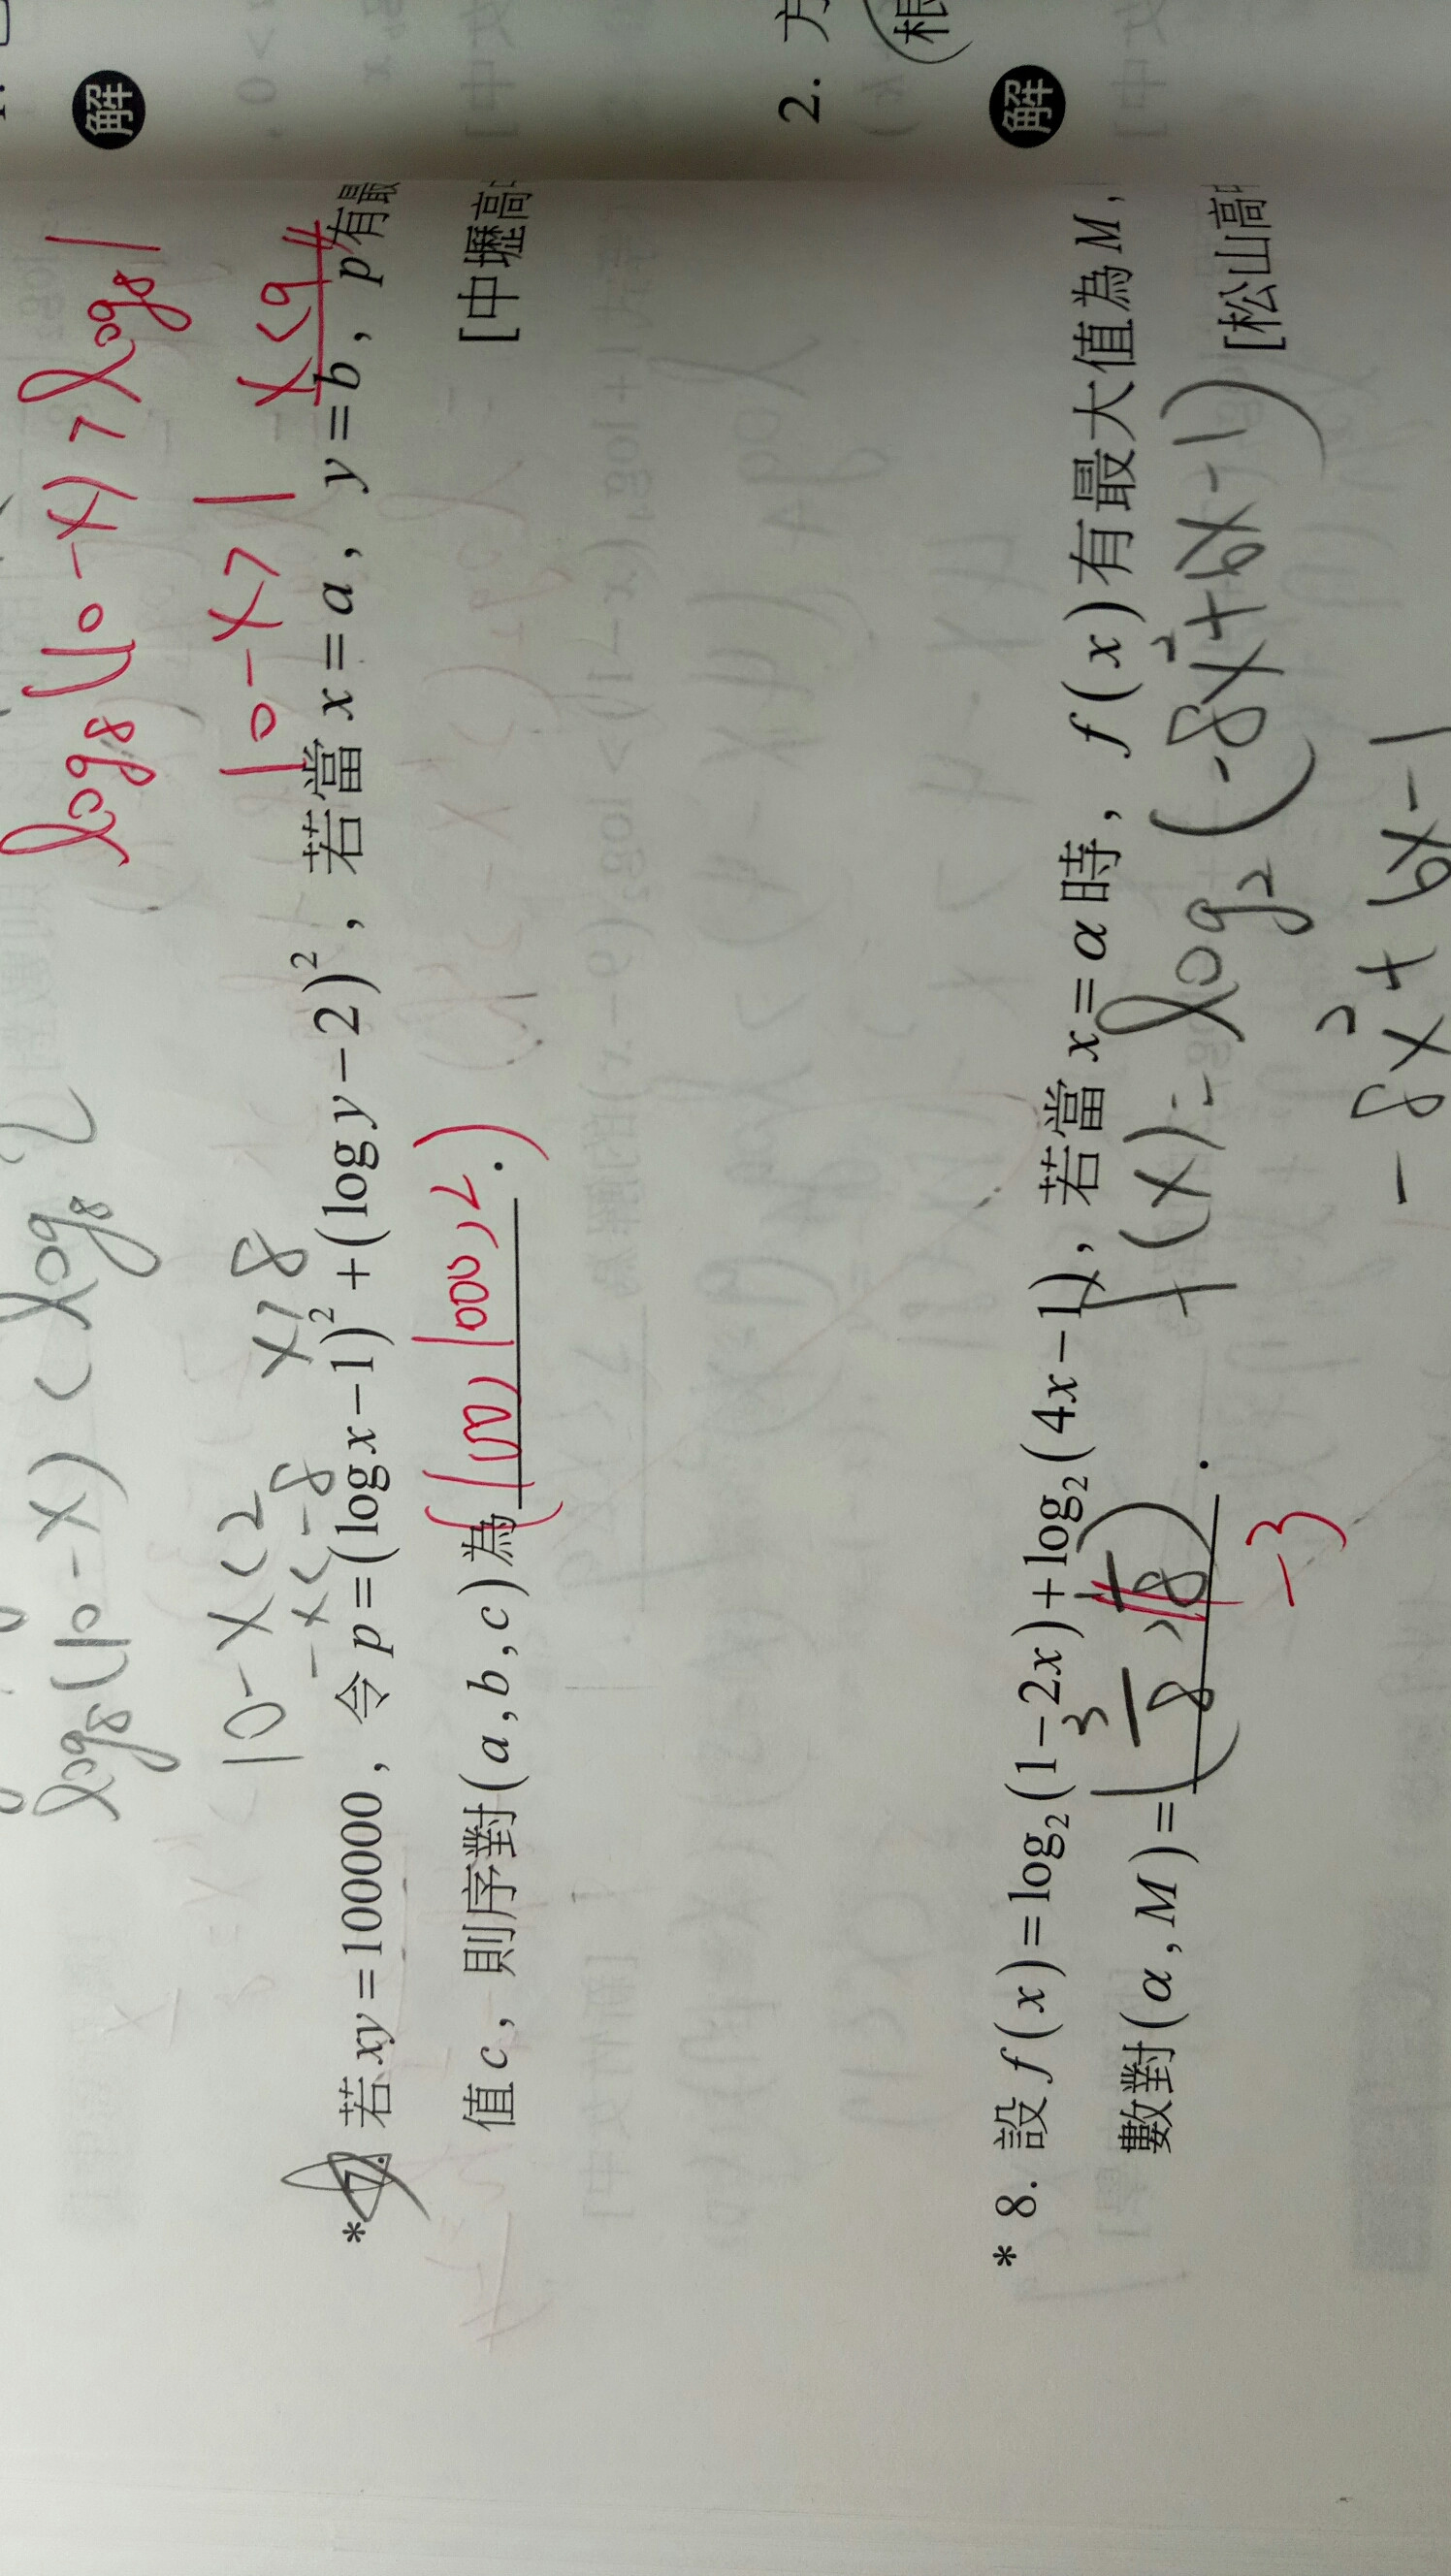 log₈(10-x) < log₈ 2
10-x<2
-x<-8
x>8
log₈(10-x)>log₈1
10-x>1
x<9
*7. 若 xy=100000,令 p=(log x-1)²+(log y-2)²,若當 x=a,y=b,p有最
值 c,則序對(a,b,c)為(100,1000,2).
[中壢高中
* 8. 設 f(x)=log₂(1-2x)+log₂(4x-1),若當 x=α 時,f(x)有最大值為 M,
數對(α,M)=(3/8, 1/8).
-3
[松山高中
f(x)=log₂(-8x²+6x-1)
-8x²+6x-1
解
2. 方
(根
解